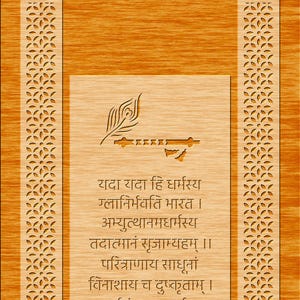 यदा यदा हि धर्मस्य
ग्लानिर्भवति भारत ।
अभ्युत्थानमधर्मस्य
तदात्मानं सृजाम्यहम् ।।
परित्राणाय साधूनां
विनाशाय च दुष्कृताम् ।